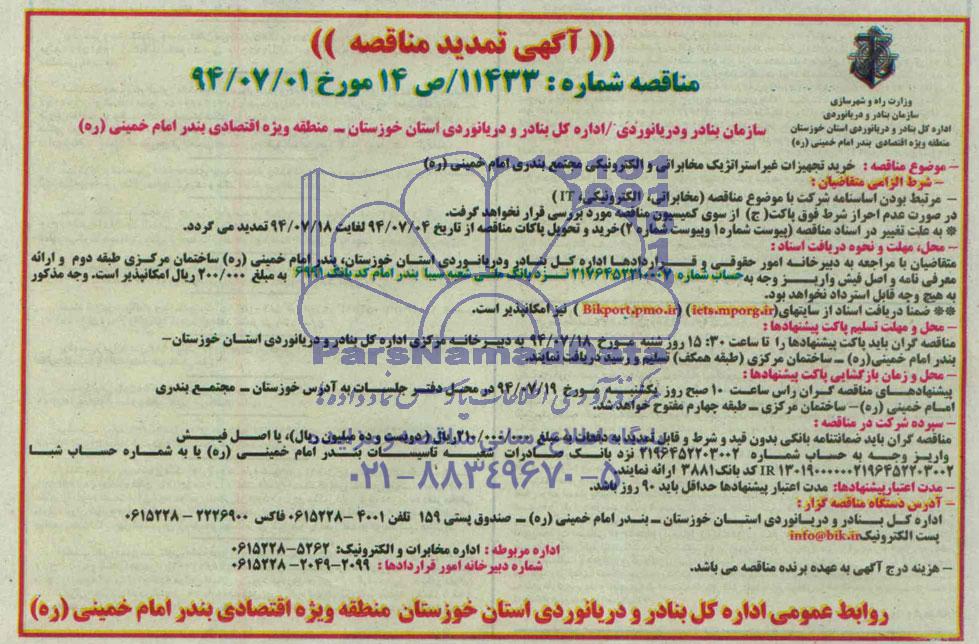 (( آگهی تمدید مناقصه ))
مناقصه شماره : ۱۱۴۳۳/ص ۱۴ مورخ ۹۴/۰۷/۰۱
وزارت راه و شهرسازی
سازمان بنادر و دریانوردی
اداره کل بنادر و دریانوردی استان خوزستان
منطقه ویژه اقتصادی بندر امام خمینی (ره)
سازمان بنادر ودریانوردی /اداره کل بنادر و دریانوردی استان خوزستان – منطقه ویژه اقتصادی بندر امام خمینی (ره)
– موضوع مناقصه : خرید تجهیزات غیر استراتژیک مخابراتی و الکترونیکی مجتمع بندری امام خمینی (ره)
– شرط الزامی متقاضیان :
– مرتبط بودن اساسنامه شرکت با موضوع مناقصه (مخابراتی، الکترونیکی، IT )
در صورت عدم احراز شرط فوق پاکت( ج ) از سوی کمیسیون مناقصه مورد بررسی قرار نخواهد گرفت.
※ به علت تغییر در اسناد مناقصه (پیوست شماره۱ وپیوست شماره۲)خرید و تحویل پاکات مناقصه از تاریخ ۹۴/۰۷/۰۴ لغایت ۹۴/۰۷/۱۸ تمدید می گردد.
– محل، مهلت و نحوه دریافت اسناد :
متقاضیان با مراجعه به دبیرخانه امور حقوقی و قراردادها اداره کل بنادر ودریانوردی استان خوزستان، بندر امام خمینی (ره) ساختمان مرکزی طبقه دوم و ارائه
معرفی نامه و اصل فیش واریز وجه به حساب شماره نزد بانک ملی شعبه سیبا بندر امام کد بانک ۶۹۹۱ به مبلغ ۲۰۰/۰۰۰ ریال امکانپذیر است. وجه مذکور
به هیچ وجه قابل استرداد نخواهد بود.
※※ ضمنا دریافت اسناد از سایتهای(iets.mporg.ir) (Bikport.pmo.ir ) نیز امکانپذیر است.
– محل و مهلت تسلیم پاکت پیشنهادها :
مناقصه گران باید پاکت پیشنهادها را تا ساعت ۱۵:۳۰ روز شنبه مورخ ۹۴/۰۷/۱۸ به دبیرخانه مرکزی اداره کل بنادر و دریانوردی استان خوزستان–
بندر امام خمینی(ره) – ساختمان مرکزی (طبقه همکف) تسلیم و رسید دریافت نمایند.
– محل و زمان بازگشایی پاکت پیشنهادها :
پیشنهادهای مناقصه گران راس ساعت ۱۰ صبح روز یکشنبه مورخ ۹۴/۰۷/۱۹ در محل دفتر جلسات به آدرس خوزستان – مجتمع بندری
امام خمینی (ره)– ساختمان مرکزی – طبقه چهارم مفتوح خواهد شد.
– سپرده شرکت در مناقصه :
مناقصه گران باید ضمانتنامه بانکی بدون قید و شرط و قابل تمدید به دفعات به مبلغ ریال ( میلیون ریال)، یا اصل فیش
واریز وجه به حساب شماره ۲۱۹۶۴۵۲۲۰۳۰۰۲ نزد بانک صادرات شعبه تاسیسات بندر امام خمینی (ره) یا به شماره حساب شبا
کد بانک ۳۸۸۱ ارائه نمایند.
– مدت اعتبار پیشنهادها: مدت اعتبار پیشنهادها حداقل باید ۹۰ روز باشد.
– آدرس دستگاه مناقصه گزار :
اداره کل بنادر و دریانوردی استان خوزستان – بندر امام خمینی (ره) – صندوق پستی ۱۵۹ تلفن ۴۰۰۱ – ۰۶۱۵۲۲۸ فاکس ۲۲۲۶۹۰۰ – ۰۶۱۵
پست الکترونیک info@bik.ir
اداره مربوطه : اداره مخابرات و الکترونیک: ۵۲۶۲–۰۶۱۵۲۲۸
شماره دبیرخانه امور قراردادها : ۲۰۹۹–۲۰۴۹ – ۰۶۱۵۲۲۸
– هزینه درج آگهی به عهده برنده مناقصه می باشد.
روابط عمومی اداره کل بنادر و دریانوردی استان خوزستان منطقه ویژه اقتصادی بندر امام خمینی (ره)
ParsNamadData
۰۲۱–۸۸۳۴۹۶۷۰–۵